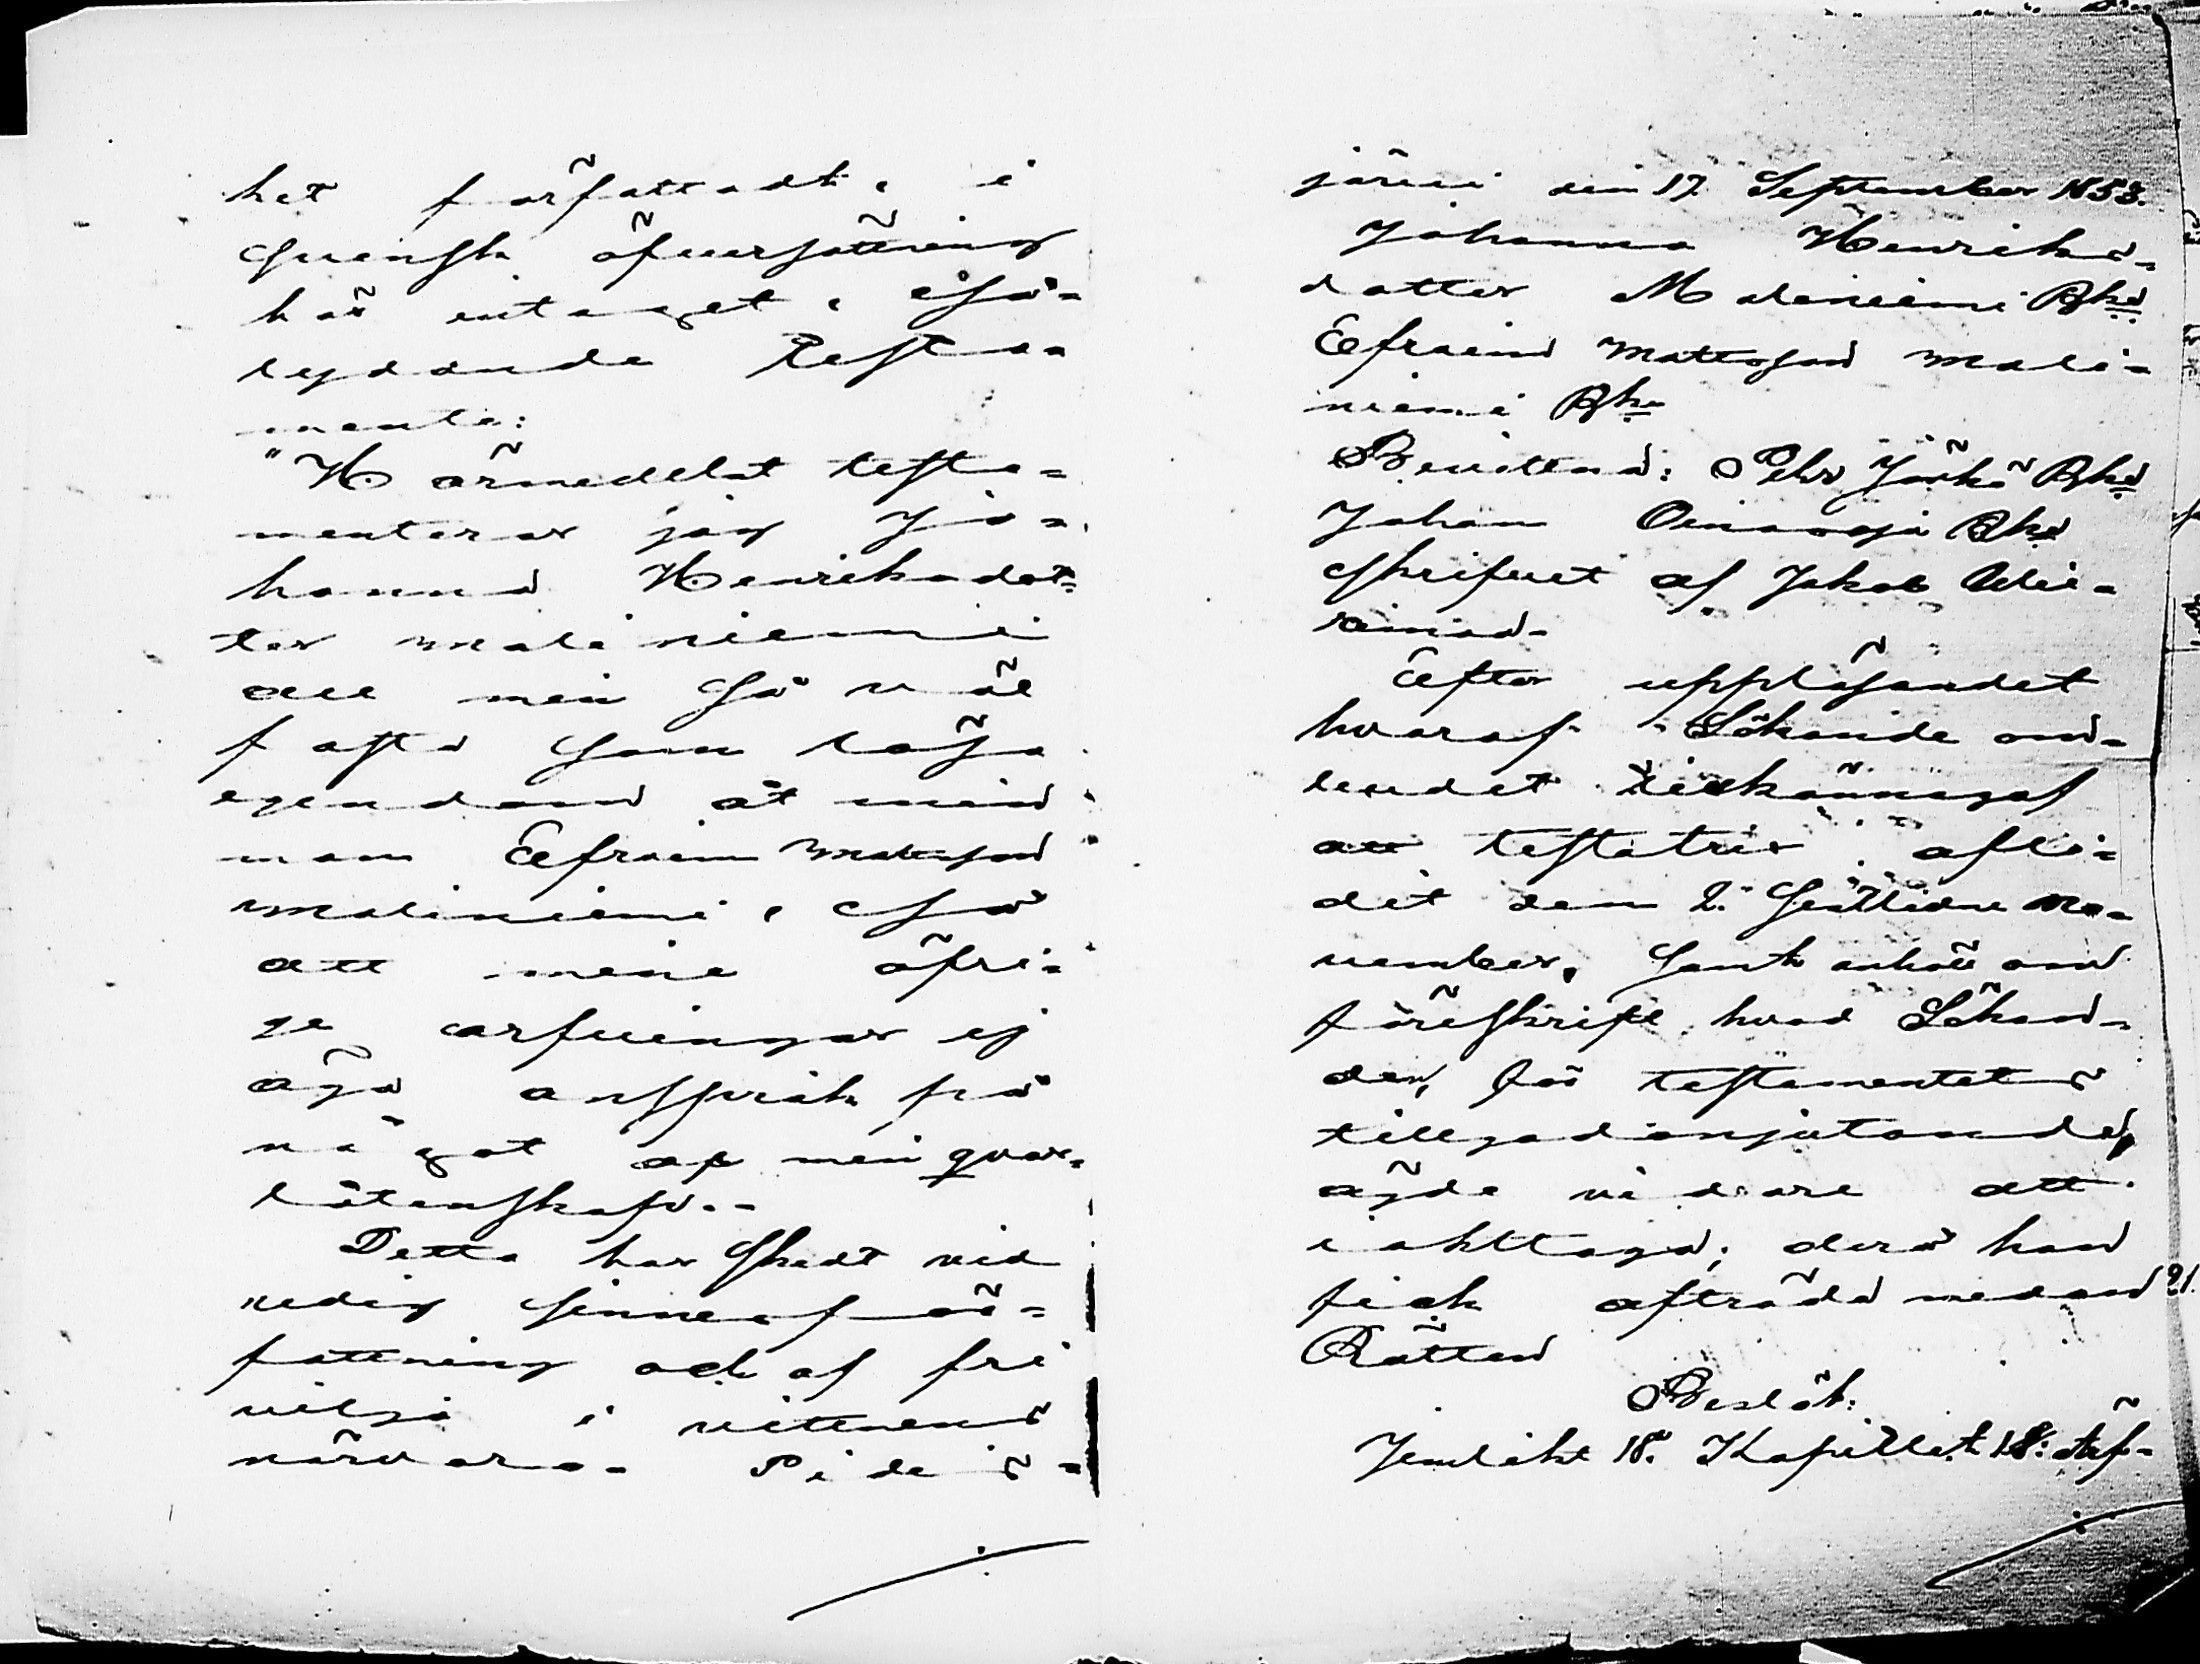 het författadt, i
Svensk öfversättning
här intaget, så-
lydande Testa-
mente:
"Härmedelst testa-
menterar jag Jo-
hanna Henriksdot-
ter Maliniemi
all min så väl
fasta som lösa
egendom åt min
man Efraim Mattsson
Maliniemi, så
att mine öfri-
ge arfvingar ej
äga anspråk på
något af min qvar-
låtenskap.-
Detta har skedt vid
redig sinnesför-
fattning och af fri
vilja i vittnens
närvaro. Pideis-
järvi den 17 September 1853.
Johanna Henriks-
dotter Maliniemi Bhd
Efraim Mattsson Mali-
niemi Bh
Bevittna: Pehr Jörkö Bhd
Johan Oinasoja Bhd
Skrifvet af Jakob
Efter uppläsandet
hvaraf Sökande om-
budet tillkännagaf
att testatrix afli-
dit den 2. sistlidne No-
vember, samt anhöll om
föreskrift hvad Sökan-
den, för testamentets
tillgodonjutande,
ägde vidare att
iakttaga; derå han
fick afträda medan
Rätten
Beslöt:
Jemlikt 18. Kapitlet 1 §. Äf-